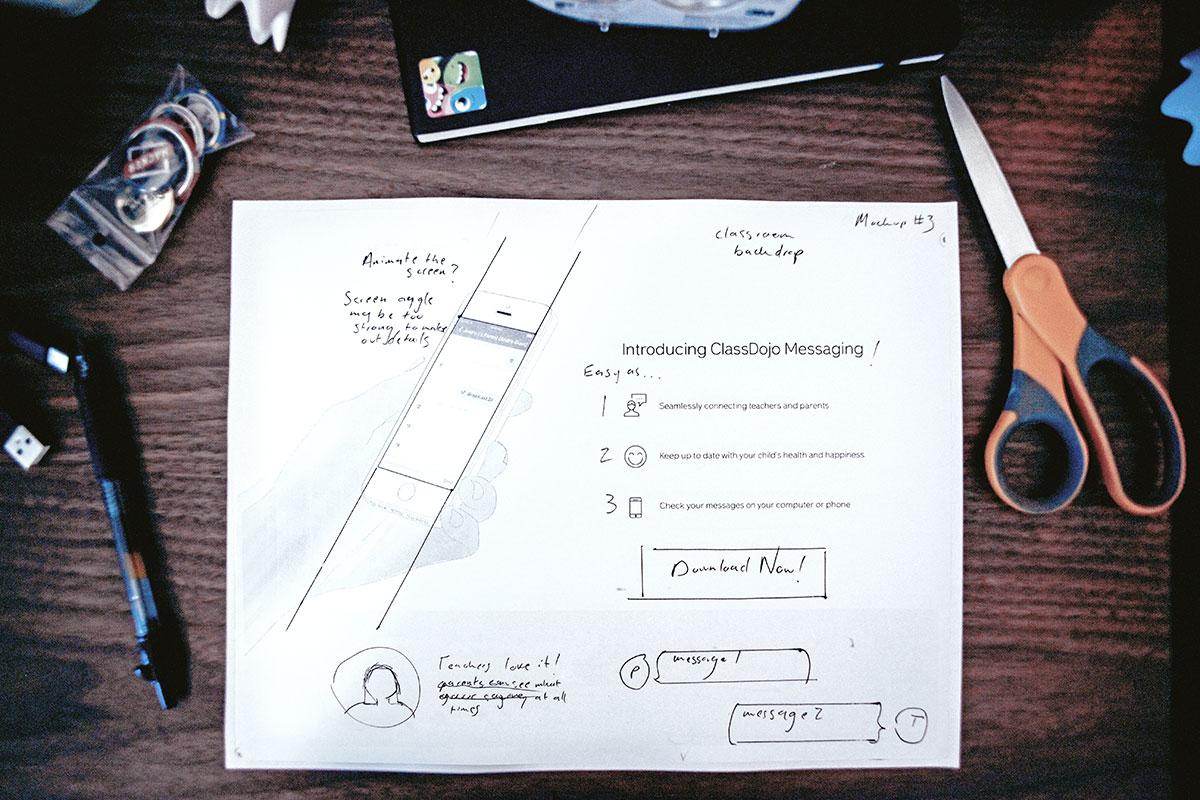 Mockup #3
classroom
backdrop
Animate the
screen?
Screen angle
may be too
strong to make
out details
Introducing ClassDojo Messaging!
Easy as...
1 Seamlessly connecting teachers and parents
2 Keep up to date with your child's health and happiness.
3 Check your messages on your computer or phone
Download Now!
Teachers love it!
parents can see what
at all
times
P message 1
message 2 T